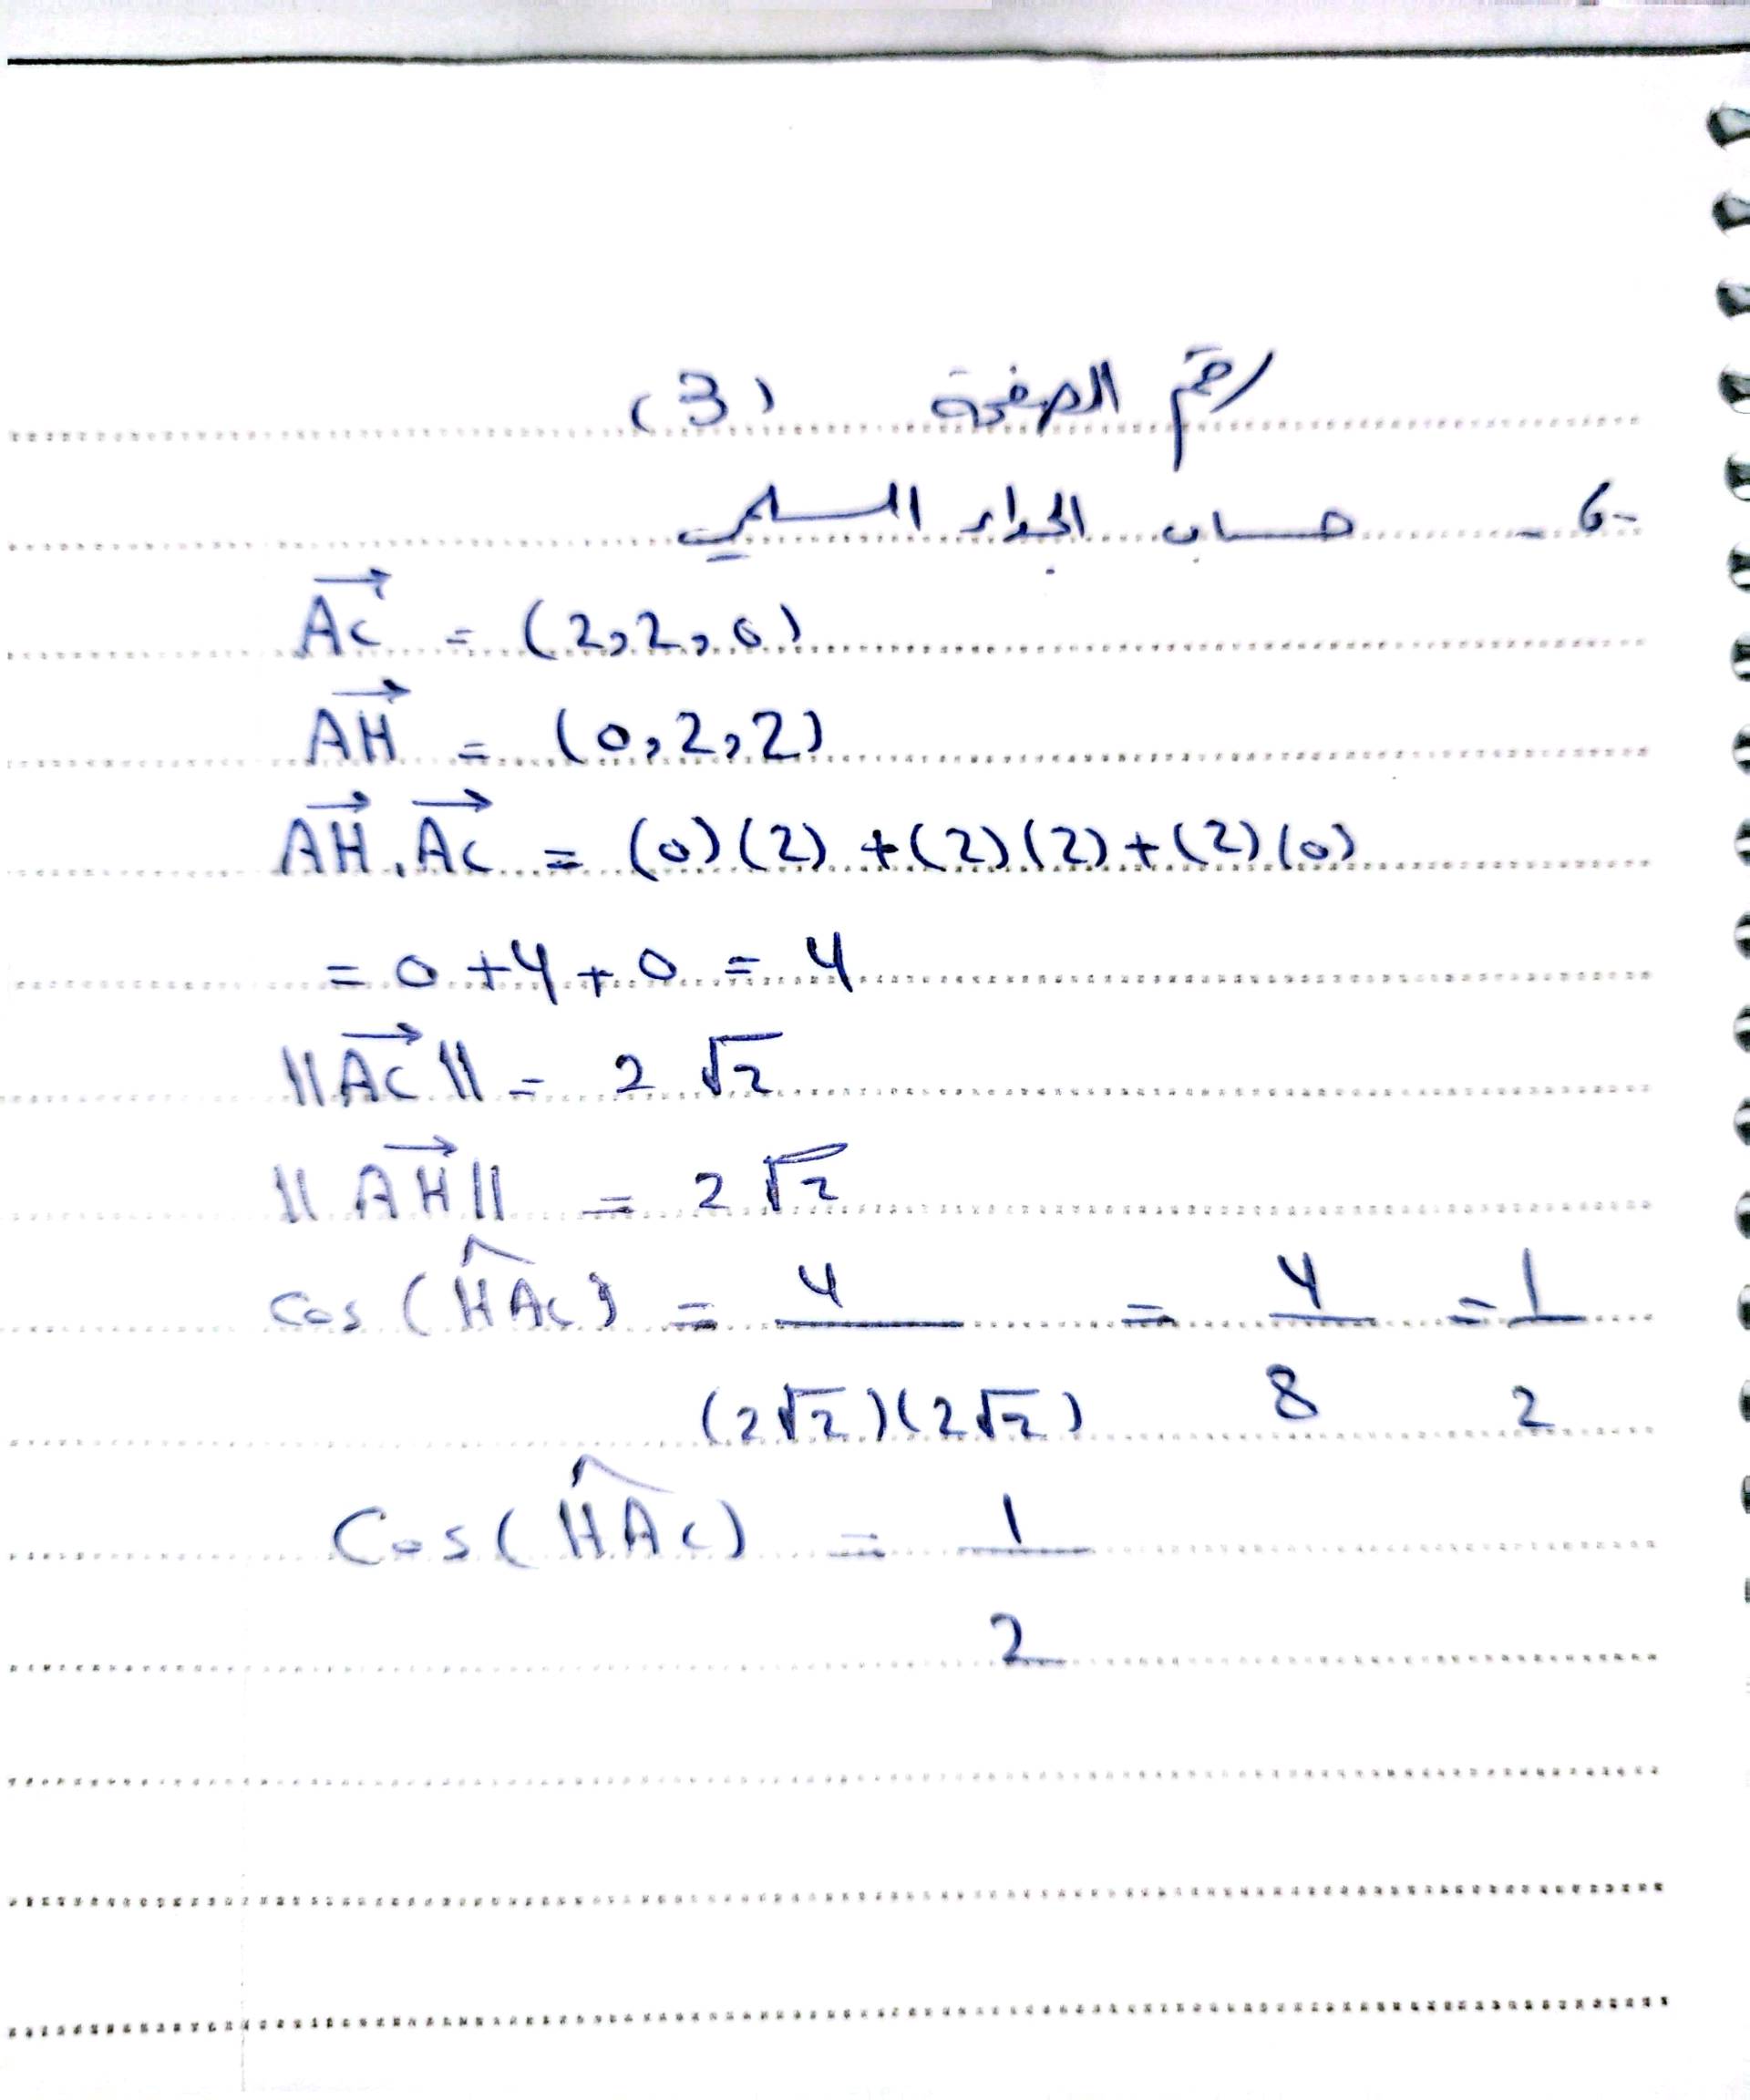 رقم الصفحة (3)
6- - حساب الجداء السلمي
AC = (2,2,0)
AH = (0,2,2)
AH . AC = (0)(2) + (2)(2) + (2)(0)
= 0 + 4 + 0 = 4
||AC|| = 2 √2
||AH|| = 2 √2
cos (HAC) = 4 / (2√2)(2√2) = 4/8 = 1/2
Cos(HAC) = 1/2